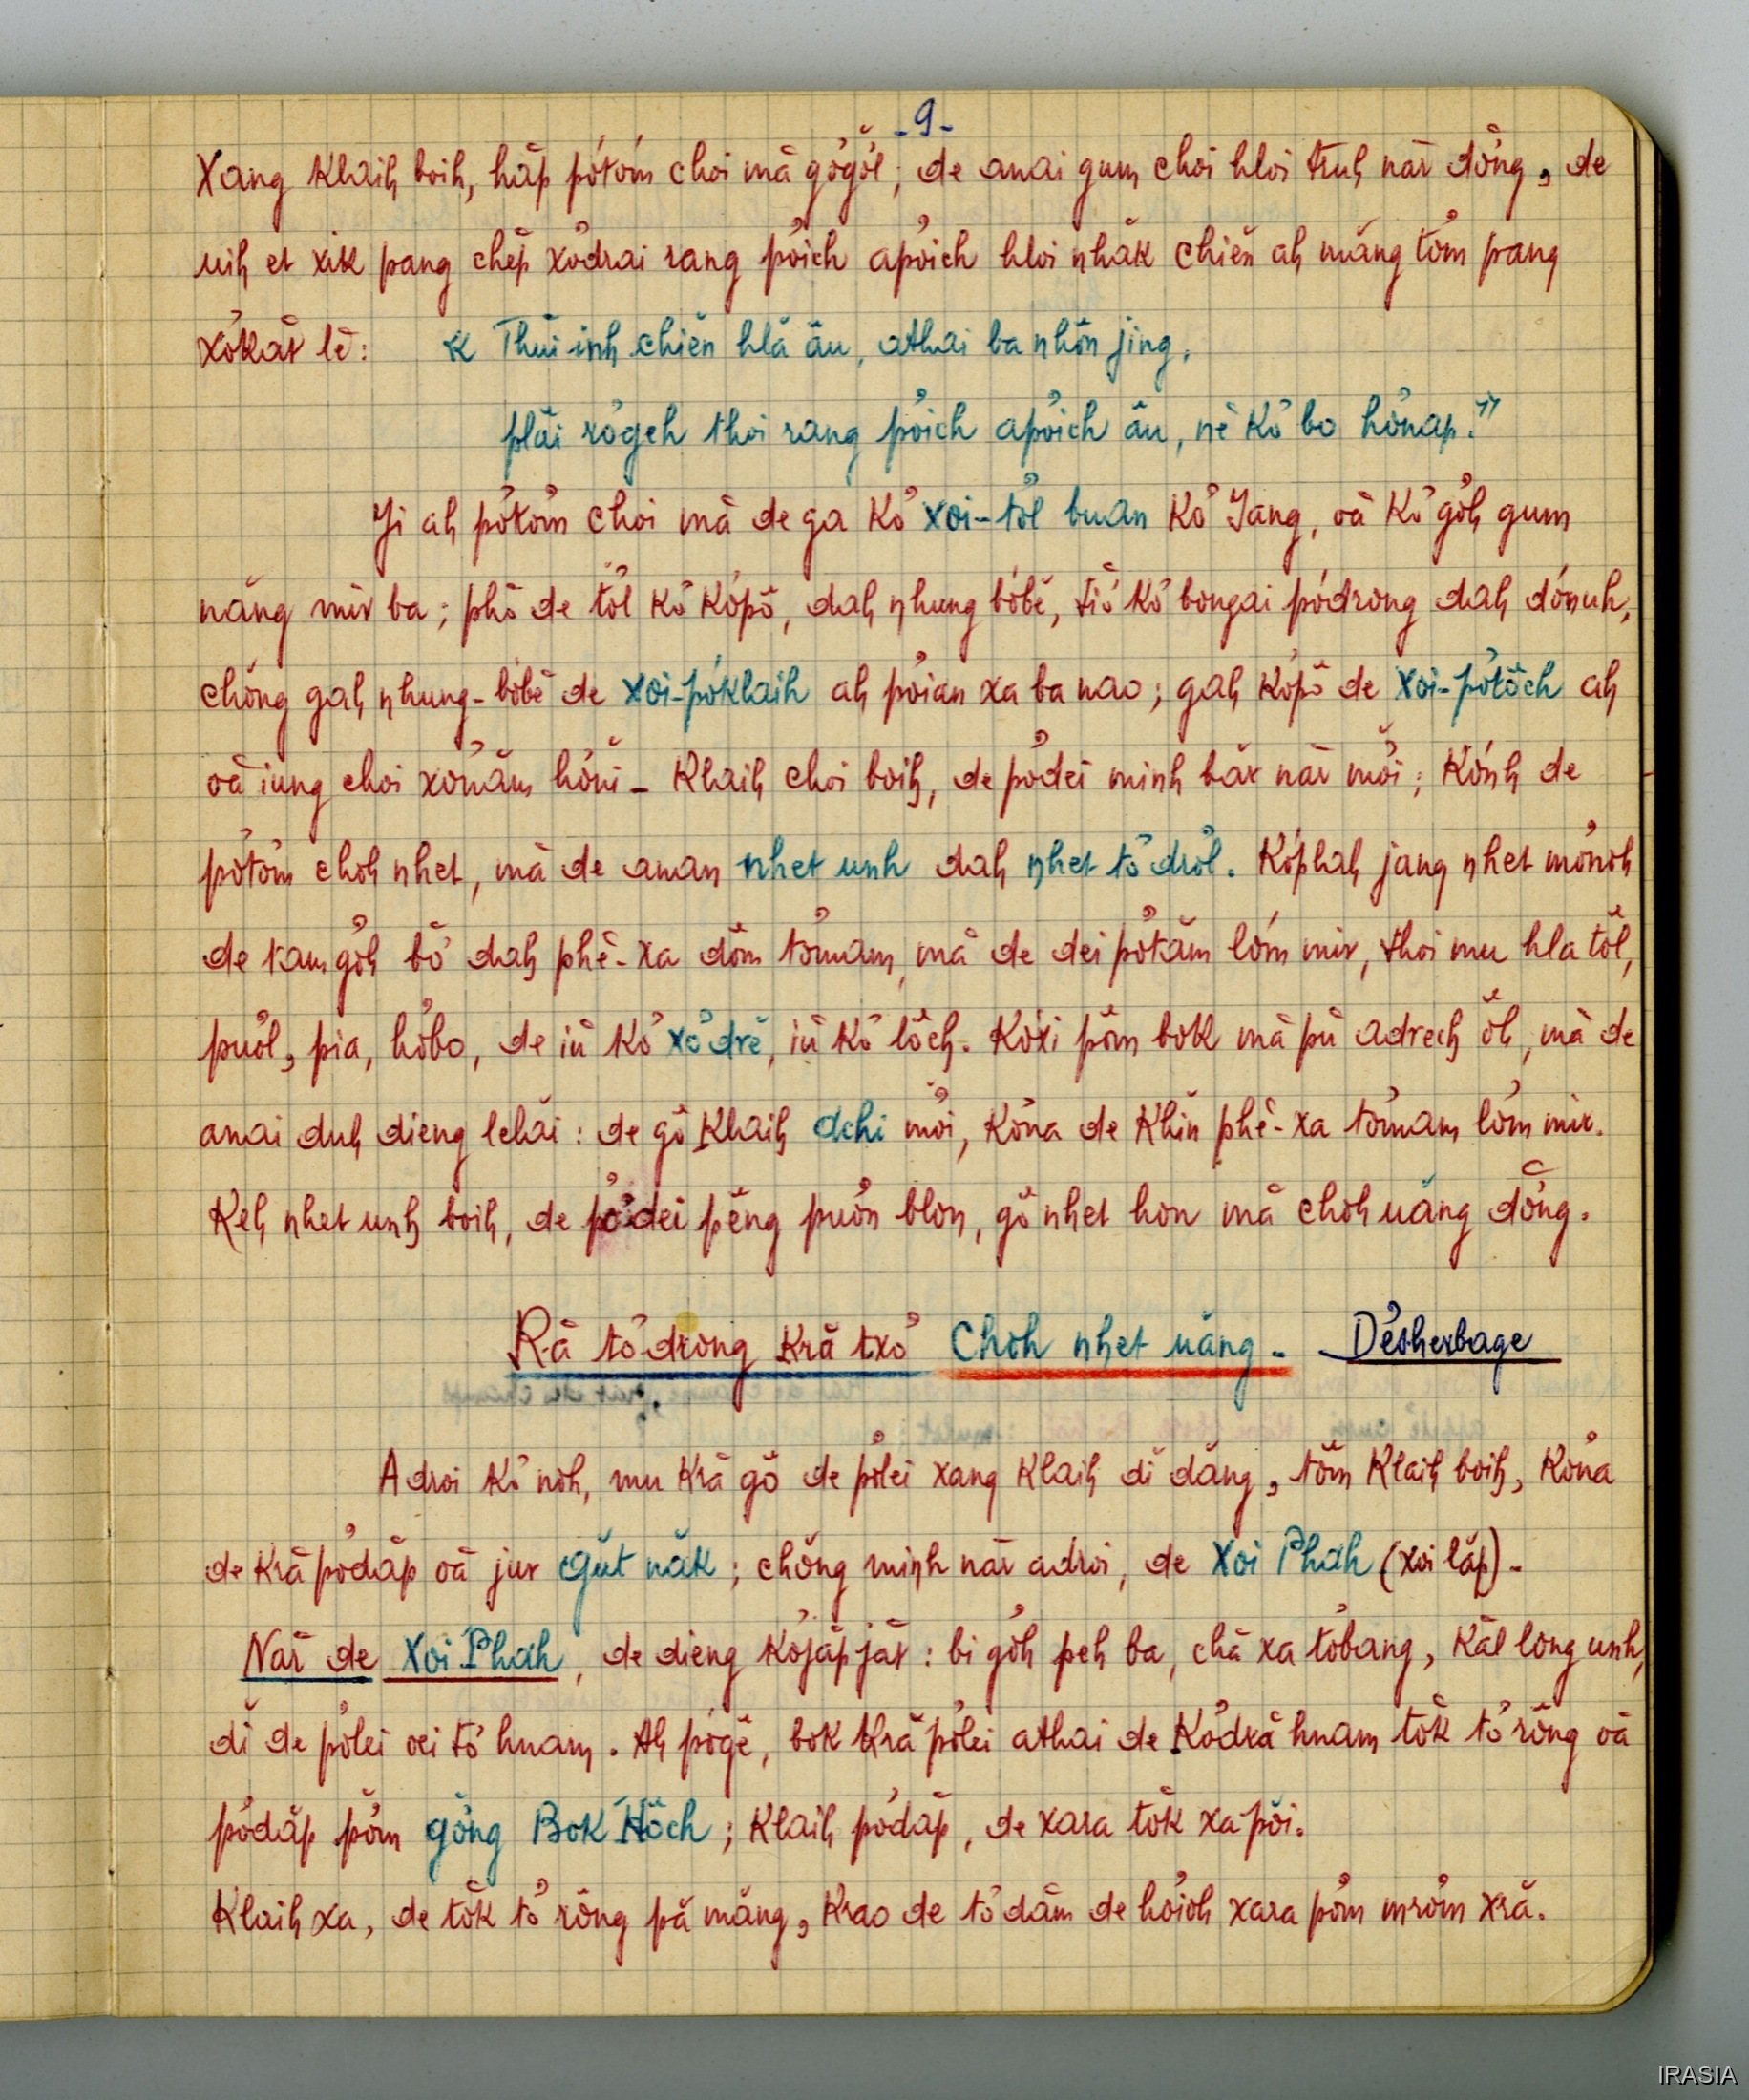 - 9 -
Xang klaih boih, hăp pơtơm choi mă gơgơ̆l; de anai gum choi hloi truh năr dơ̆ng, de
uih et xik pang chĕp xơdrai rang pơich apơich hloi nhăk chiĕn ah măng tơm pang
xơkăt lĕ: « Thŭi-inh chiĕn hlă âu, athai ba nhôn jing,
plăi rơgeh thoi rang pơich apơich âu, nĕ kơ bo hơnap. »
Yi ah pơtơm choi mă de ga kơ xoi-tơ̆l buan kơ Yang, oă kơ gơ̆h gum
năng mir ba; phŏ de tơ̆l kơ kơpô, dah nhung bơbĕ, tiŏ kơ bongai pơdrong dah dơnuh,
chŏng gah nhung-bơbĕ de xoi-pơklaih ah pơian xa ba nao; gah kơpô de xoi-pơtŏch ah
oă iung choi xơnăm hơni - Klaih choi boih, de pơdei minh băr năr mơ̆i; kơnh de
pơtơm choh nhet, mă de anan nhet unh dah nhet tơdrơ̆l. Kơplah jang nhet mơnoh
de tam gơ̆h bŏ dah phĕ-xa dôm tơmam, mă de dei pơtăm lơ̆m mir, thoi mu hla tŏl,
puơ̆l, pia, hơbo, de iŭ kơ xơdrĕ, iŭ kơ lôch. Kơxi pôm bok mă pŭ adrech ŏh, mă de
anai duh dieng lehăi: de gô klaih dchi mơ̆i, kơna de khĭn phĕ-xa tơmam lơ̆m mir.
Keh nhet unh boih, de pơdei pêng puơ̆n blon, gô nhet hon mă choh uăng dơ̆ng.
Ră tơdrong kră txơ Choh nhet uăng - Désherbage
Adroi kơ noh, mu kră gô de pơlei xang klaih dĭ dăng, tôm klaih boih, kơna
de kră pơdăp oă jur gŭt năk; chŏng minh năr adroi, de Xoi Phăh (xoi lăp) -
Năr de Xoi Phăh, de dieng kơjăp jăt: bi gơ̆h peh ba, chă xa tơbang, kăl long unh,
dĭ de pơlei oei tơ hnam. Ah pơgĕ, bok kră pơlei athai de kơdră hnam tŏk tơ rông oă
pơdăp pơ̆m gông Bok Hôch; klaih pơdăp, de xara tŏk xa pŏi.
Klaih xa, de tŏk tơ rông pă măng, krao de tơdăm de hơioh xara pơ̆m mrơ̆m xră.
IRASIA